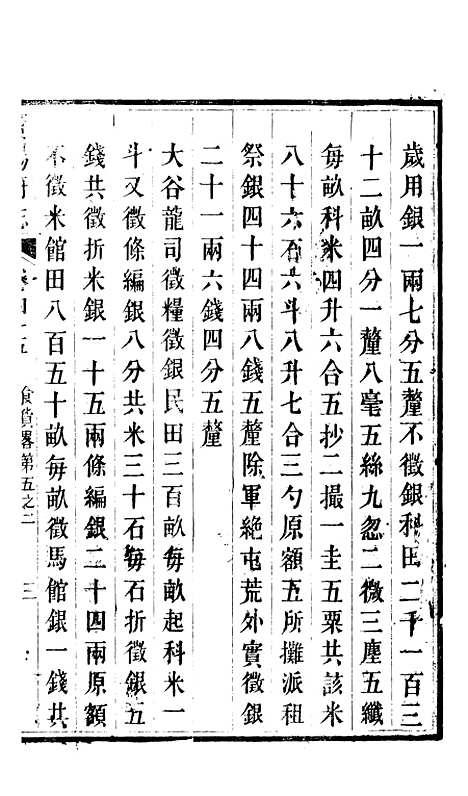 歲用銀一兩七分五釐不徵銀科田二千一百三
十二畝四分一釐八毫五絲九忽二微三塵五纖
每畝科米四升六合五抄二撮一圭五粟共該米
八十六石六斗八升七合三勺原額五所攤派租
祭銀四十四兩八錢五釐除軍絶屯荒外實徵銀
二十一兩六錢四分五釐
大谷龍司徵糧徵銀民田三百畝每畝起科米一
斗又徵條編銀八分共米三十石每石折徵銀五
錢共徵折米銀一十五兩條編銀二十四兩原額
不徵米館田八百五十畝每畝徵馬館銀一錢共
食貨畧第五之二 三